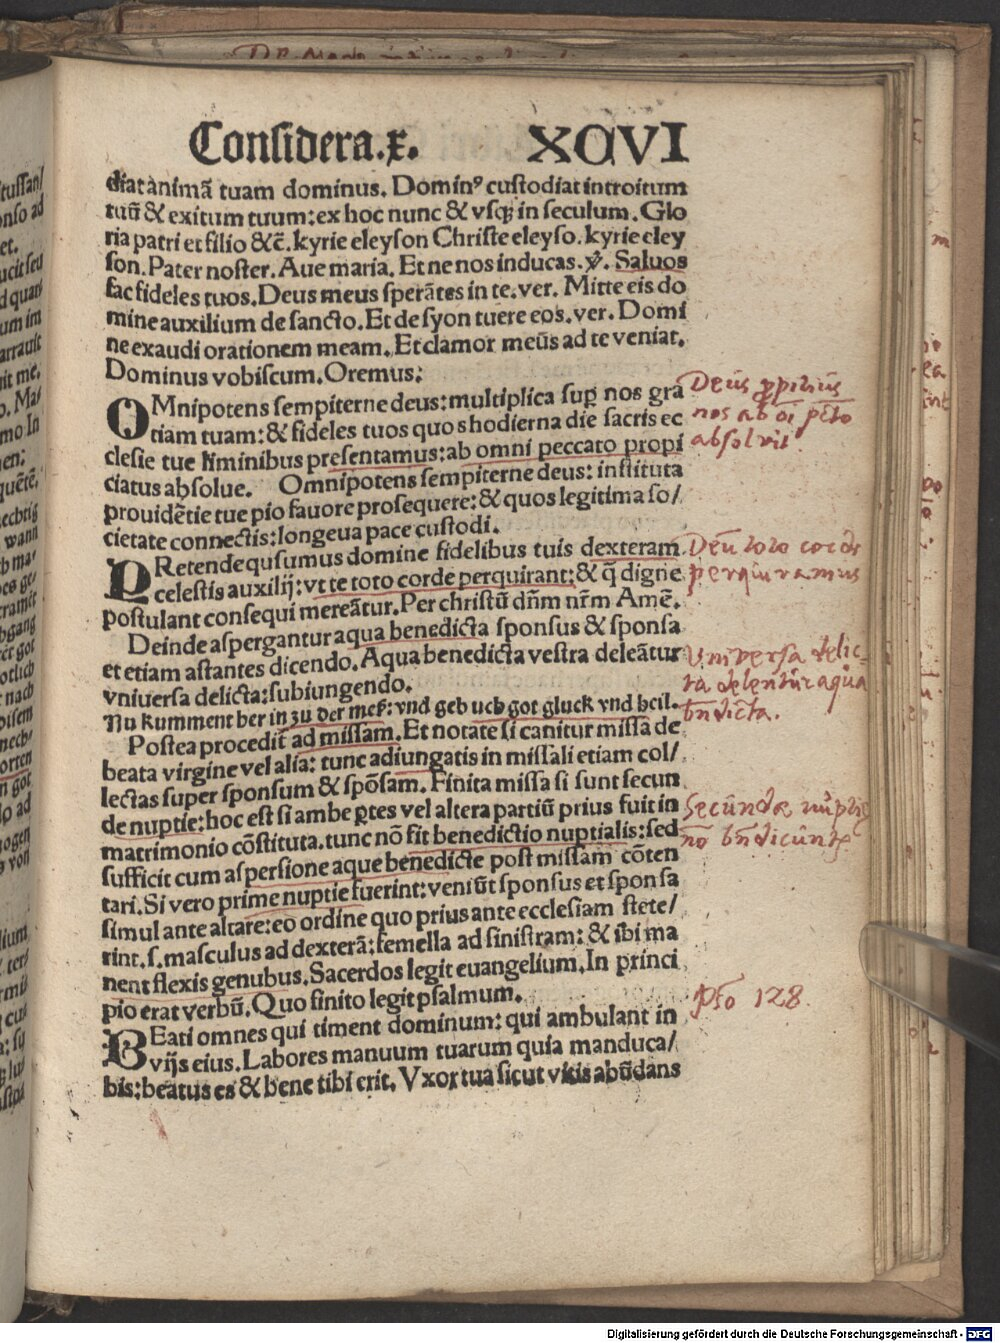 Considera.x. XCVI
diat animã tuam dominus. Dominꝰ custodiat introitum
tuũ & exitum tuum: ex hoc nunc & vsqꝫ in seculum. Glo
ria patri et filio &c̃. kyrie eleyson Christe eleyso. kyrie eley
son. Pater noster. Aue maria. Et ne nos inducas. ℣. Saluos
fac fideles tuos. Deus meus sperãtes in te. ver. Mitte eis do
mine auxilium de sancto. Et de syon tuere eos. ver. Domi
ne exaudi orationem meam. Et clamor meus ad te veniat.
Dominus vobiscum. Oremus:
OMnipotens sempiterne deus: multiplica suꝑ nos gra
tiam tuam: & fideles tuos quos hodierna die sacris ec
clesie tue liminibus presentamus: ab omni peccato propi
ciatus absolue. Omnipotens sempiterne deus: instituta
prouidẽtie tue pio fauore prosequere: & quos legitima so/
cietate connectis: longeua pace custodi.
PRetende qusumus domine fidelibus tuis dexteram
celestis auxilij: vt te toto corde perquirant: & q̃ digne
postulant consequi mereãtur. Per christũ dñm nr̃m Amẽ.
Deinde aspergantur aqua benedicta sponsus & sponsa
et etiam astantes dicendo. Aqua benedicta vestra deleãtur
vniuersa delicta: subiungendo.
Nu kumment her in zu der meß: vnd geb uch got gluck vnd heil.
Postea procedit ad missam. Et notate si canitur missa de
beata virgine vel alia: tunc adiungatis in missali etiam col/
lectas super sponsum & spõsam. Finita missa si sunt secun
de nuptie: hoc est si ambe ꝑtes vel altera partiũ prius fuit in
matrimonio cõstituta. tunc nõ fit benedictio nuptialis: sed
sufficit cum aspersione aque benedicte post missam cõten
tari. Si vero prime nuptie fuerint: veniũt sponsus et sponsa
simul ante altare: eo ordine quo prius ante ecclesiam stete/
rint. s. masculus ad dexterã: femella ad sinistram: & ibi ma
nent flexis genubus. Sacerdos legit euangelium. In princi
pio erat verbũ. Quo finito legit psalmum.
BEati omnes qui timent dominum: qui ambulant in
vijs eius. Labores manuum tuarum quia manduca/
bis: beatus es & bene tibi erit. Vxor tua sicut vitis abũdans
Deus ꝓpitius
nos ab oi pc̃to
absolvit
Deũ toto corde
perquiramus
Universa delic-
ta delentur aqua
bn̄dicta.
Secundæ nuptie
nō bn̄dicunt
Pso 128.
Digitalisierung gefördert durch die Deutsche Forschungsgemeinschaft - DFG